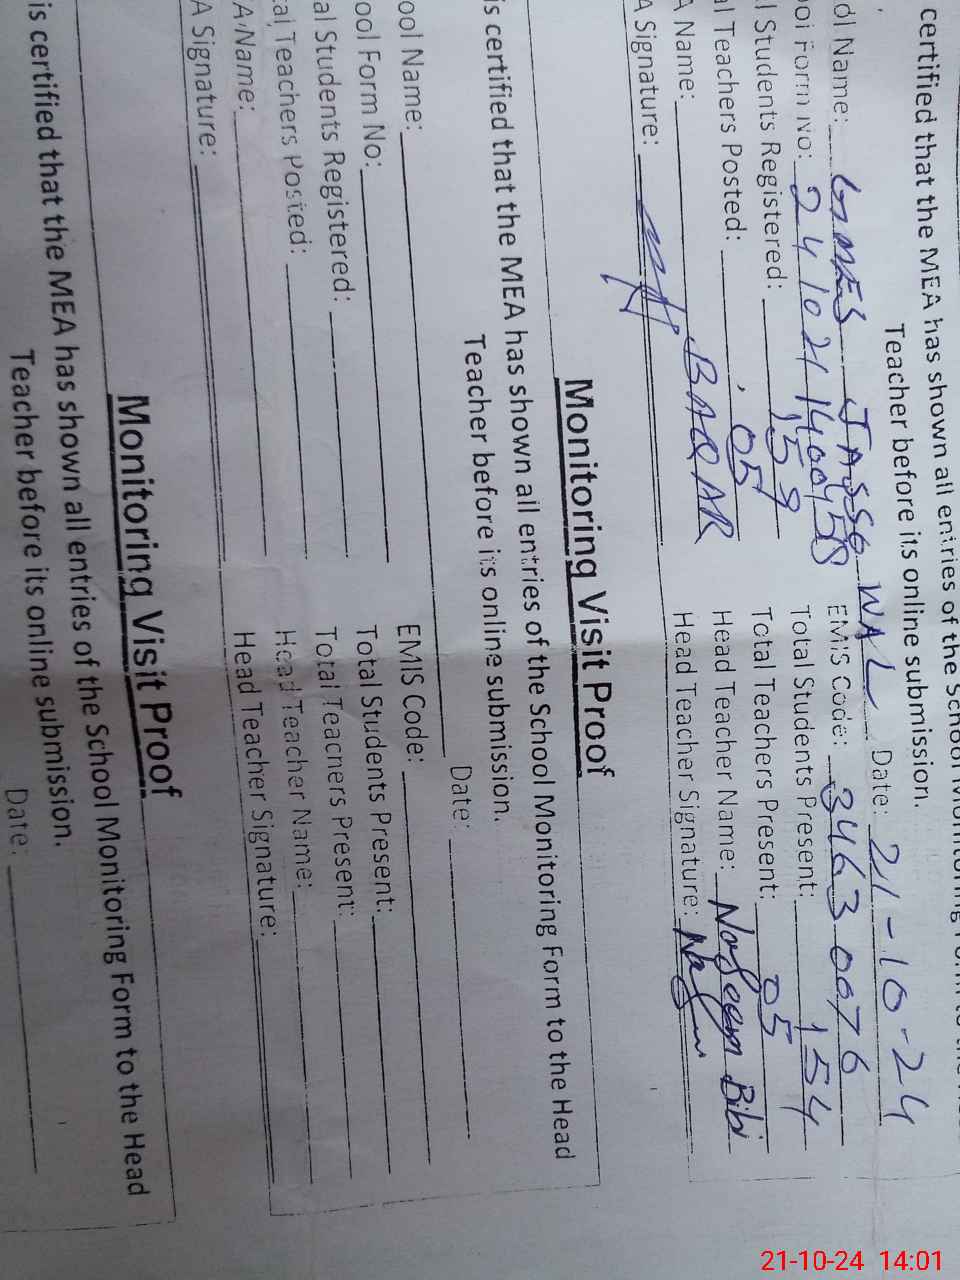 certified that the MEA has shown all entries of the School Monitoring Form to the Head
Teacher before its online submission.
Date: 21-10-24
ool Name: GMES JASSO WAL EMIS Code: 34630076
ool Form No: Total Students Present: 154
l Students Registered: 159 Total Teachers Present: 05
al Teachers Posted: 05 Head Teacher Name: Naseem Bibi
A Name: BABAR Head Teacher Signature:
A Signature:
Monitoring Visit Proof
is certified that the MEA has shown all entries of the School Monitoring Form to the Head
Teacher before its online submission.
Date:
ool Name: EMIS Code:
ool Form No: Total Students Present:
al Students Registered: Total Teachers Present:
al Teachers Posted: Head Teacher Name:
A Name: Head Teacher Signature:
A Signature:
Monitoring Visit Proof
is certified that the MEA has shown all entries of the School Monitoring Form to the Head
Teacher before its online submission.
Date:
21-10-24 14:01